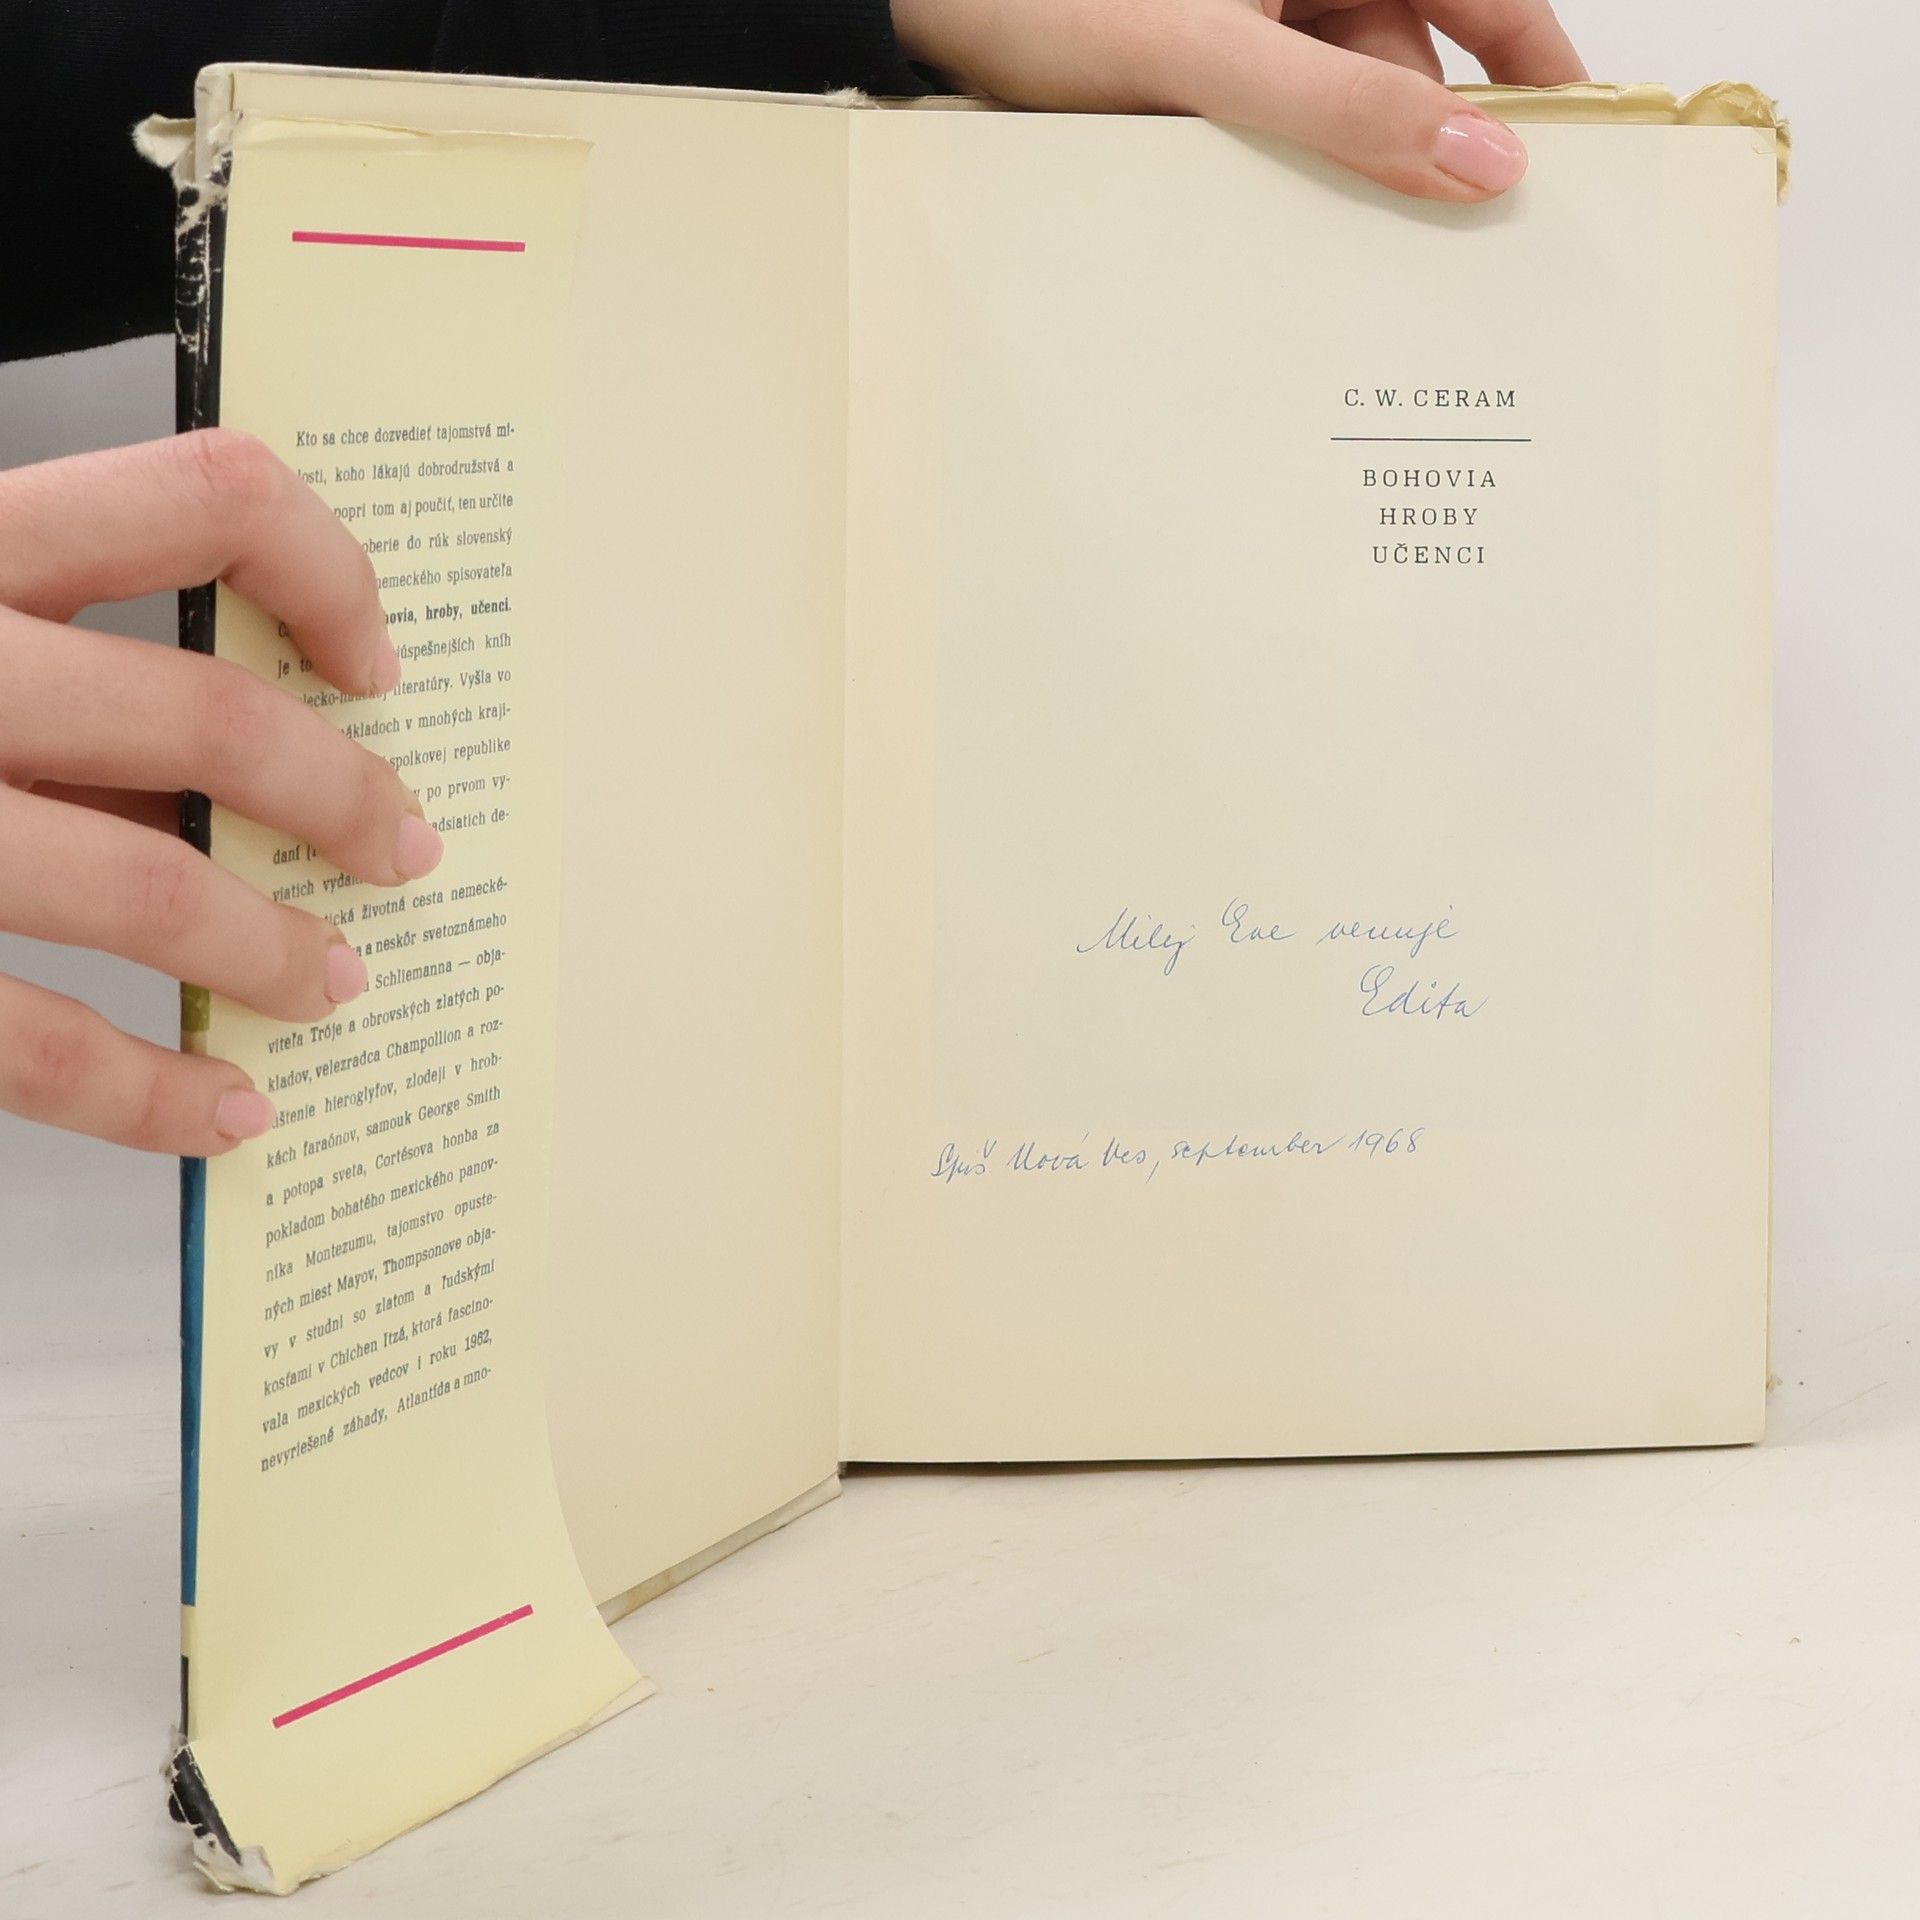 Kto sa chce dozvedieť tajomstvá mi-
losti, koho lákajú dobrodružstvá a
popri tom aj poučiť, ten určite
do rúk slovenský
nemeckého spisovateľa
hroby, učenci.
Je to kníh
literatúry. Vyšla vo
v mnohých kraji-
spolkovej republike
po prvom vy-
de-
daní
viatich
životná cesta nemecké-
a neskôr svetoznámeho
Schliemanna — obja-
viteľa Tróje a obrovských zlatých po-
kladov, velezradca Champollion a roz-
lúštenie hieroglyfov, zlodeji v hrob-
kách faraónov, samouk George Smith
a potopa sveta, Cortésova honba za
pokladom bohatého mexického panov-
níka Montezumu, tajomstvo opuste-
ných miest Mayov, Thompsonove obja-
vy v studni so zlatom a ľudskými
kosťami v Chichen Itzá, ktorá fascino-
vala mexických vedcov i roku 1962,
nevyriešené záhady, Atlantída a mno-
C. W. CERAM
BOHOVIA
HROBY
UČENCI
Milej Eve venuje
Edita
Spiš. Nová Ves, september 1968